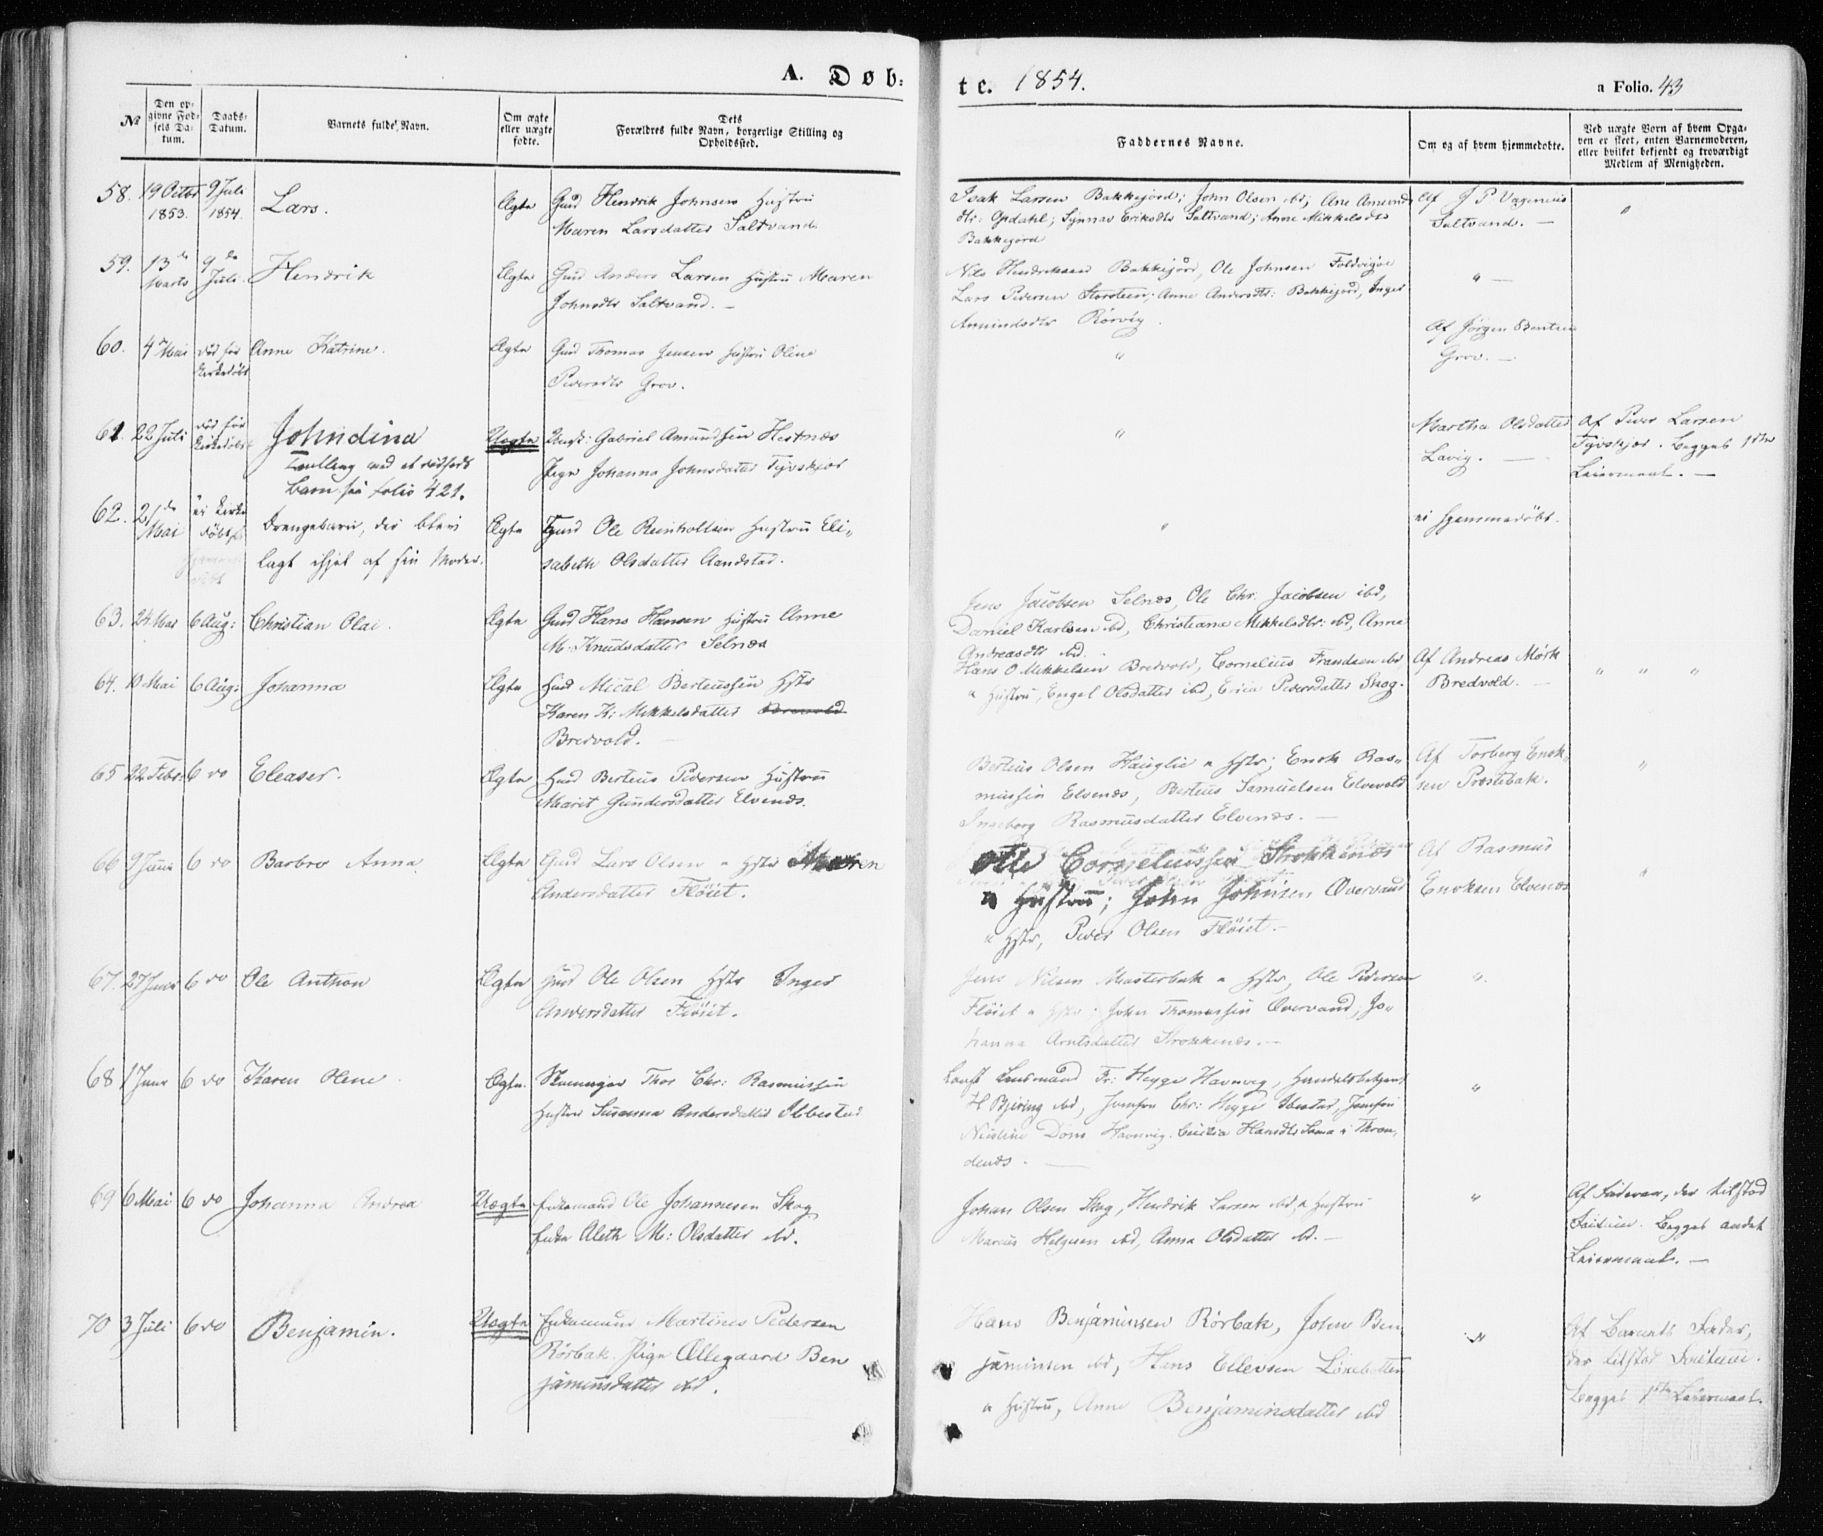 A. Døb:
te. 1854.
a Folio. 43
№
Den opgivne Fødsels Datum.
Daabs-Datum.
Barnets fulde Navn.
Om ægte eller uægte fødte.
Dets
Forældres fulde Navn, borgerlige Stilling og
Opholdssted.
Faddernes Navne.
Om og af hvem hjemmedøbte.
Ved uægte Børn af hvem Opga-
ven er skeet, enten Barnemoderen,
eller hvilket bekjendt og troværdigt
Medlem af Menigheden.
58. 19 Octbr 1853. 9 Juli 1854. Lars. Ægte Gmd Hendrik Johnsen Hustru
Maren Larsdatter Saltvand
Isak Larsen Bakkejord; John Olsen ibd; Ane Amunds
dtr: Opdahl; Synnav Eriksdtr Saltvand; Anne Mikkelsdtr
Bakkejord
Af J P Vagenius
Saltvand. —
"
59. 13de Marts 9de Juli. Hendrik Ægte Gmd Anders Larsen Hustru Maren
Johnsdtr Saltvand. —
Nils Hendriksen Bakkejord, Ole Johnsen Foldvigøe
Lars Pedersen Storsteen; Anne Andersdtr: Bakkejord, Inger
Amundsdtr Rørvig.
" —
60. 4 Mai død før Kirkedåb Anne Katrine. Ægte Gmd Thomas Jensen Hustru Oline
Pedersdtr Grov.
"
Af Jørgen Bentsen
Grov. —
61. 22 Juli død før Kirkedåb Johndina
Tvilling med et dødfødt
Barn see folio 421.
Uægte Ungk: Gabriel Amundsen Hestnæs
Pige Johanna Johnsdatter Tyvskjær
"
Martha Olsdatter
Lavig. —
Af Peder Larsen
Tyvskjær. Begges 1ste
Leiermaal. —
62. 21de Mai ei Kirke døbt Drengebarn, der blev
lagt ihjel af sin Moder.
Ægte Gmd Ole Reinholtsen Hustru Eli-
sabeth Olsdatter Aandstad.
"
ei hjemmedøbt.
63. 24 Mai 6 Aug: Christian Olai. Ægte Gmd Hans Hansen Hustru Anne
M: Knudsdatter Selnæs
Jens Jacobsen Selnæs, Ole Chr. Jacobsen ibd,
Daniel Karlsen ibd, Christiana Mikkelsdtr: ibd, Anne
Andreasdtr ibd.
64. 10 Mai 6 Aug: Johanna Ægte Gmd Mical Berteussen Hstr
Karen K: Mikkelsdatter
Bredvold. —
Hans O Mikkelsen Bredvold, Cornelius Frandsen ibd
a Hustru, Engel Olsdatter ibd, Erica Pedersdatter Skog.
Af Andreas Mørk
Bredvold. —
" " "
65 22 Febr. 6 do Eleaser. Ægte Gmd Berteus Pedersen Hustru
Marit Gundersdatter Elvenæs.
Berteus Olsen Hauglie a Hstr; Enok Ras-
mussen Elvenæs, Berteus Samuelsen Elvevold
Ingeborg Rasmusdatter Elvenæs. —
Af Torberg Enok-
sen Prestbak.
"
66 9 Juni 6 do Barbro Anna Ægte Gmd Lars Olsen a Hstr Maren
Andersdatter Fløiet.
Ole Corneliussen Strokkenæs
a Hustru; John Johnsen Overvand
a Hstr, Peder Olsen Fløiet —
Af Rasmus
Enoksen Elvenæs
"
67. 27 Juni 6 do Ole Anthon Ægte Gmd Ole Olsen Hstr Inger
Andersdatter Fløiet.
Jens Nilsen Mosterbak a Hstr, Ole Pedersen
Fløiet a Hstr; John Thomassen Overvand, Jo-
hanna Arntsdatter Strokkenæs. —
"
68 1 Juni 6 do Karen Olene Ægte. Thor Chr: Rasmussen
Hustru Susanna Andersdatter Ibbestad
Lensmand Fr: Heyge Havnvig, Handelsbetjent
H Bjering ibd, Jomfru Chr: Heyge Ibestad, Jomfru
Dons Havnvig. Cecilia Hansdtr Sama i Thron-
denæs. —
"
69 6 Mai 6 do Johanna Andrea Uægte Enkemand Ole Johannesen Skog
Enke Aleth M: Olsdatter ibd.
Johan Olsen Skog, Hendrik Larsen ibd, a Hustru
Marcus Helgesen ibd, Anna Olsdatter ibd. —
"
Af Faderen, der tilstod
Factum. Begges andet
Leiermaal. —
70 3 Juli 6 do Benjamin. Uægte Enkemand Martinus Pedersen
Rørbak. Pige Ellegaard Ben
jaminsdatter ibd.
Hans Benjaminsen Rørbak, John Ben
jaminsen ibd, Hans Ellevsen
a Hustru, Anne Benjaminsdatter ibd
"
Af Barnets Fader,
der tilstod Factum.
Begges 1ste Leiermaal.